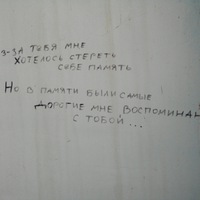 З-ЗА ТЕБЯ МНЕ
ХОТЕЛОСЬ СТЕРЕТЬ
СЕБЕ ПАМЯТЬ
НО В ПАМЯТИ БЫЛИ САМЫЕ
ДОРОГИЕ МНЕ ВОСПОМИНА
С ТОБОЙ ...